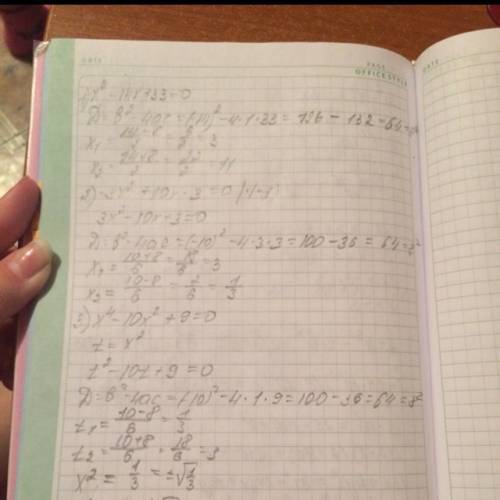 DATE
PAGE
OFFICE STYLE
DATE
1) x² - 14x + 33 = 0
D = b² - 4ac = (-14)² - 4·1·33 = 196 - 132 = 64 = 8²
x₁ = (14-8)/2 = 6/2 = 3
x₂ = (14+8)/2 = 22/2 = 11
2) -3x² + 10x - 3 = 0 |·(-1)
3x² - 10x + 3 = 0
D = b² - 4ac = (-10)² - 4·3·3 = 100 - 36 = 64 = 8²
x₁ = (10+8)/6 = 18/6 = 3
x₂ = (10-8)/6 = 2/6 = 1/3
3) x⁴ - 10x² + 9 = 0
t = x²
t² - 10t + 9 = 0
D = b² - 4ac = (-10)² - 4·1·9 = 100 - 36 = 64 = 8²
t₁ = (10-8)/6 = 1/3
t₂ = (10+8)/6 = 18/6 = 3
x² = 1/3 = ±√(1/3)